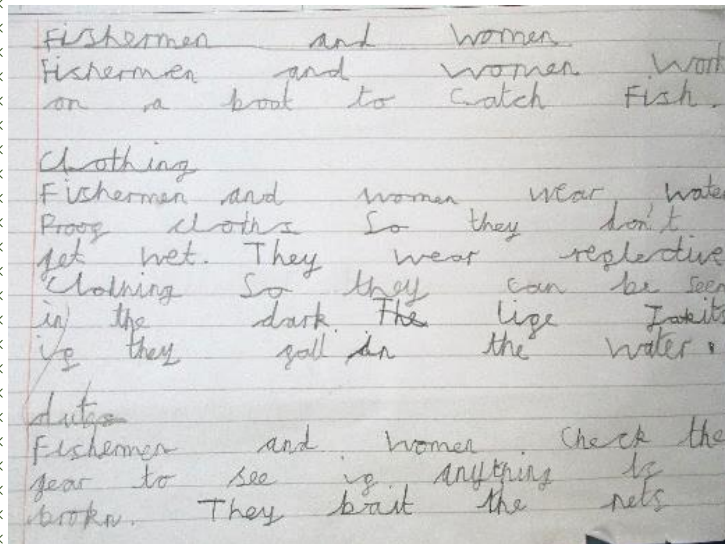 Fishermen and women
Fishermen and women work
on a boat to catch fish.
Clothing
Fishermen and women wear water
Proog cloths So they don't
get wet. They wear reglective
Clothing So they can be seen
in the dark. The lige Jakits
ig they gall in the water.
dutes
Fishermen and women Check the
gear to see ig anything is
brokn. They bait the nets